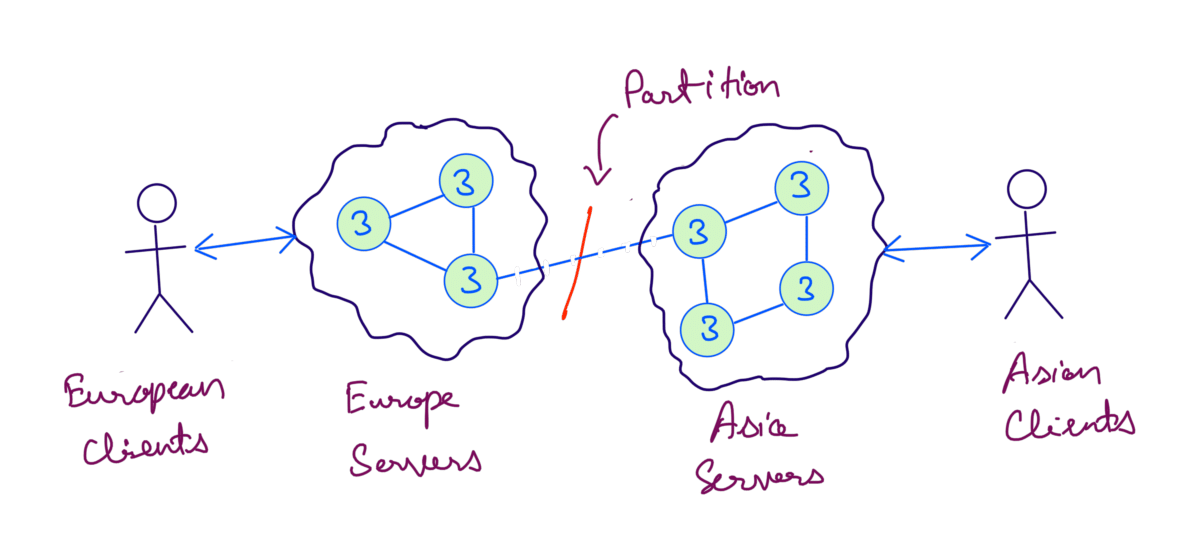 Partition
3
3
3
3
3
3
3
European
Clients
Europe
Servers
Asia
Servers
Asian
Clients